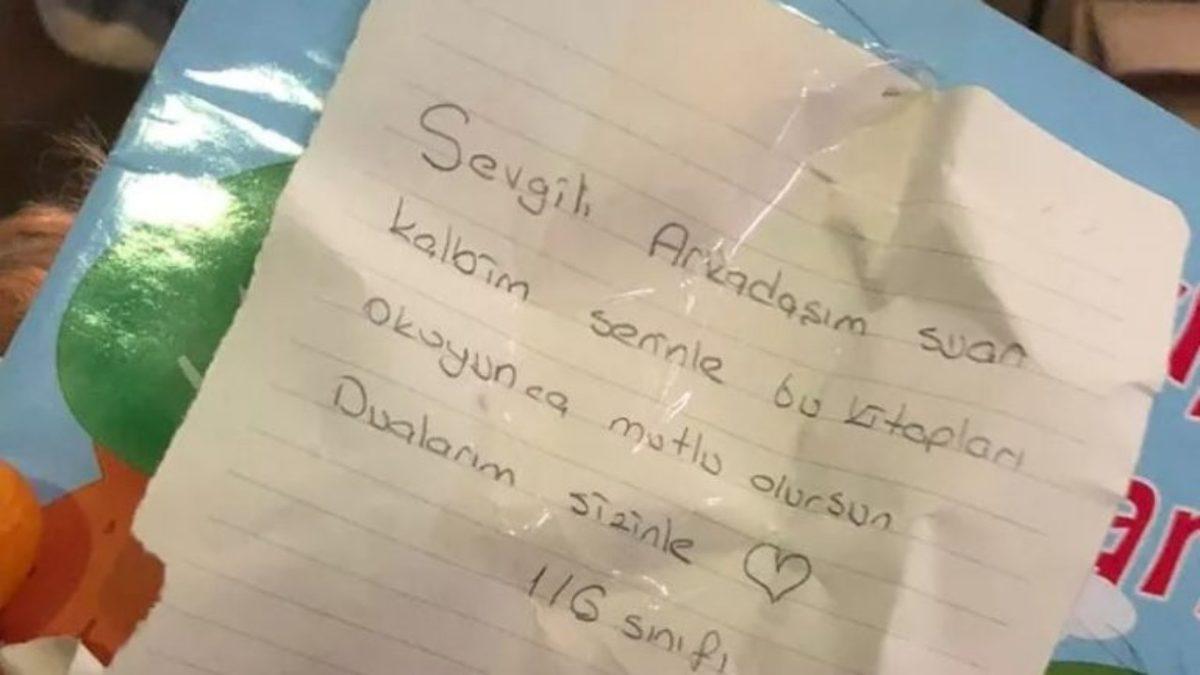 Sevgili Arkadaşım şuan
kalbim seninle bu kitapları
okuyunca mutlu olursun
Dualarım sizinle ♡
1/G sınıfı